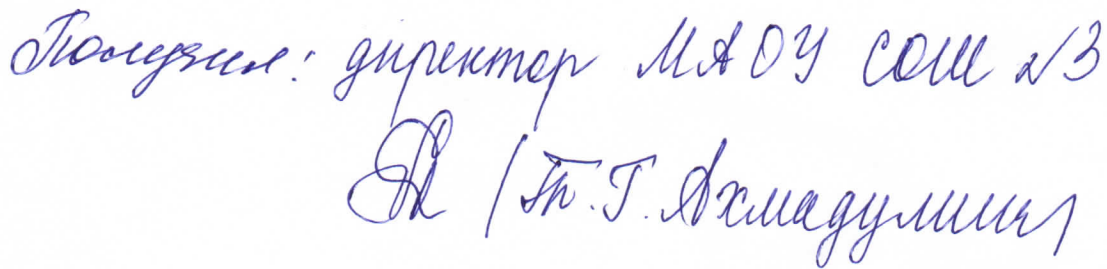 Получил: директор МАОУ СОШ №3
(Т.Г. Ахмадулин)